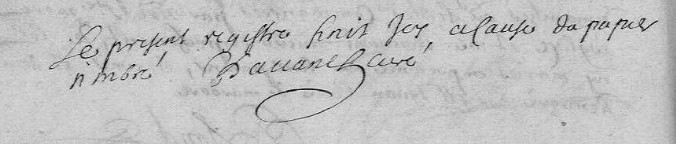 Le present registre finit Icy acause du papier
timbré Davanel curé